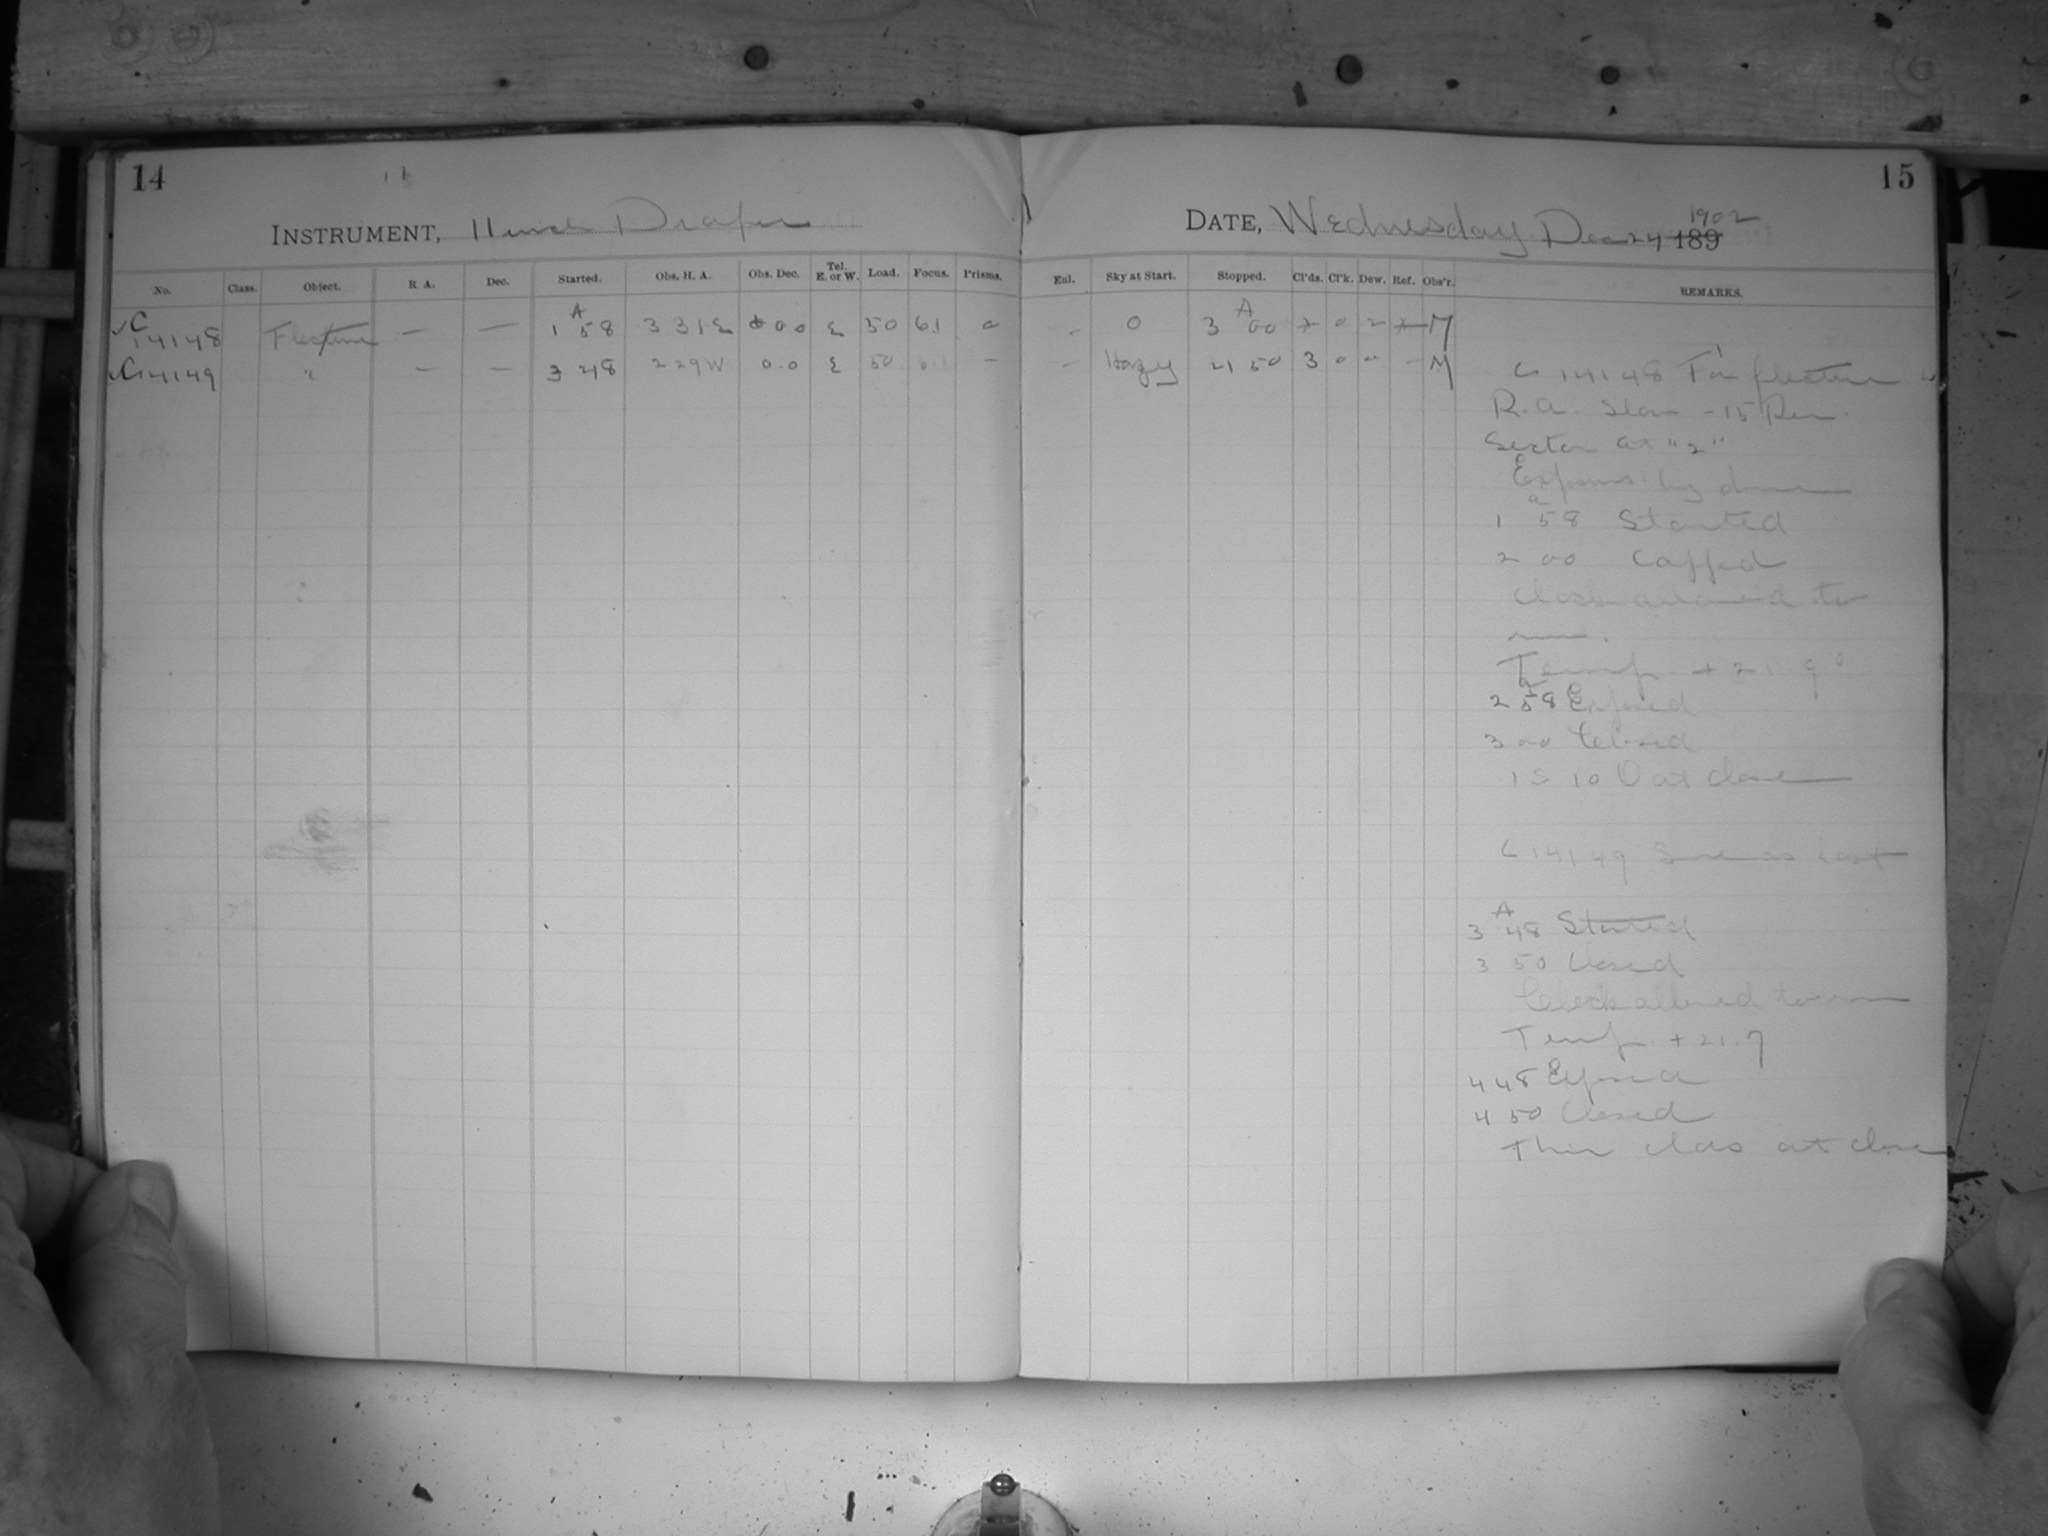 14
15
INSTRUMENT, 11 inch Draper
DATE, Wednesday Dec 24 189 1902
No. Class. Object. R A. Dec. Started. Obs. H. A. Obs. Dec. Tel. E. or W. Load. Focus. Prisms. Enl. Sky at Start. Stopped. Cl'ds. Cl'k. Dew. Ref. Obs'r. REMARKS.
C 14148 Flexture — — 1 A 58 3 31 E 0 0 0 E 50 6.1 0 - 0 3 A 00 0 2 M
C 14149 " — — 3 48 2 29 W 0.0 E 50 6.1 — - Hazy 4 50 3 0 0 - M
C 14148 For flexture
R.A. Slow - 15 Den
Sector at "2"
Exposures by dome
1 a 58 Started
2 00 Capped
Clock allowed to
run.
Temp. + 21.9°
2 58 Exposed
3 00 Closed
1 S 10 0 at close
C 14149 Same as last
3 A 48 Started
3 50 Closed
Clock allowed to run
Temp. + 21.7
4 48 Exposed
4 50 Closed
Thin clds at close